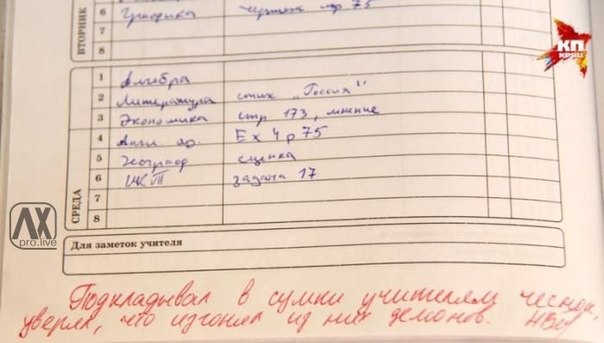 ВТОРНИК
6 Графика чертёж стр 75
7
8
СРЕДА
1 Алгебра
2 Литература стих „Россия"
3 Экономика стр 173, мнение
4 Англ. яз. Ex 4 p 75
5 Географ сценка
6 ИКТ задача 17
7
8
Для заметок учителя
Подкладывал в сумки учителям чеснок,
уверял, что изгонял из них демонов.
КП
ЛХ
pro.live